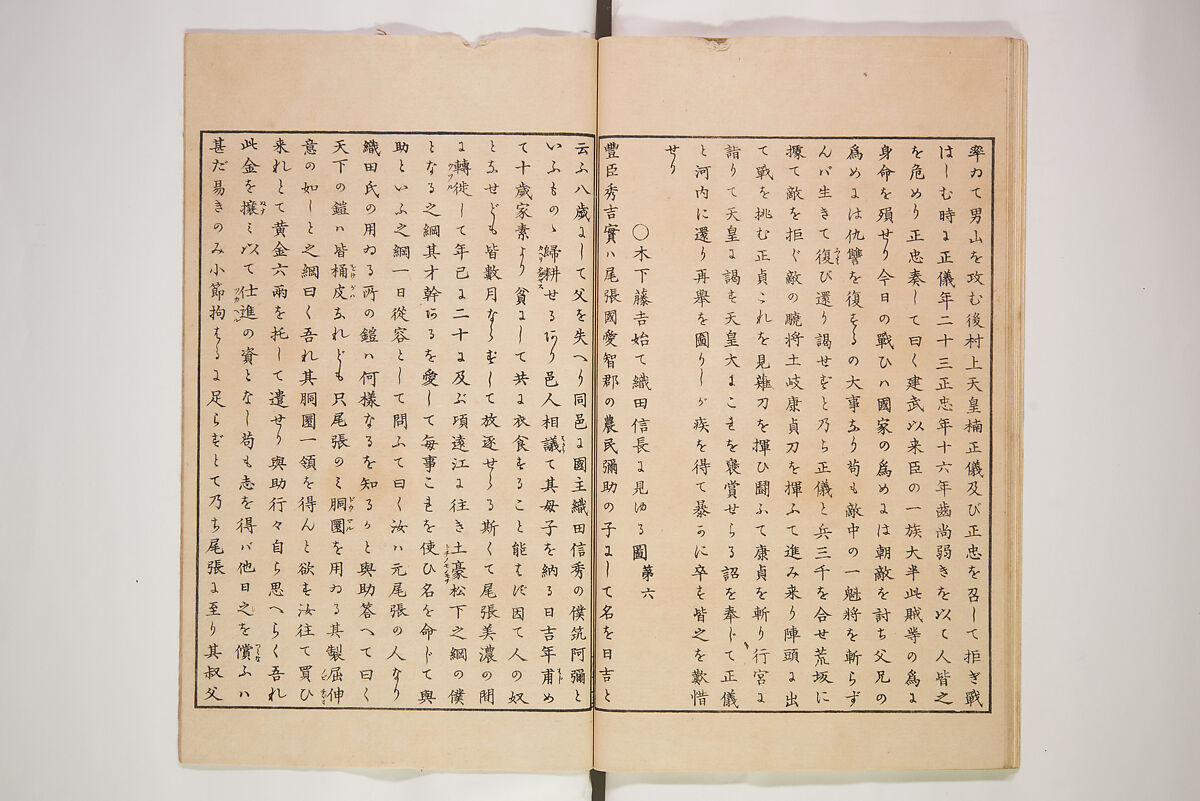 率ゐて男山を攻む後村上天皇楠正儀及び正忠を召して拒ぎ戰
はしむ時に正儀年二十三正忠年十六年齒尚弱きを以て人皆之
を危めり正忠奏して曰く建武以来臣の一族大半此賊等の為に
身命を殞せり今日の戰ひハ國家の爲めには朝敵を討ち父兄の
爲めには仇讐を復するの大事なり苟も敵中の一魁將を斬らず
んバ生きて復び還り謁せずと乃ち正儀と兵三千を合せ荒坂に
據て敵を拒ぐ敵の驍將土岐康貞刀を揮ふて進み来り陣頭に出
て戰を挑む正貞これを見薙刀を揮ひ鬪ふて康貞を斬り行宮に
詣りて天皇に謁す天皇大にこれを褒賞せらる詔を奉じて正儀
と河内に還り再舉を圖りしが疾を得て暴かに卒す皆之を歎惜
せり
〇木下藤吉始て織田信長に見ゆる圖 第六
豐臣秀吉實ハ尾張國愛智郡の農民彌助の子にして名を日吉と
云ふ八歳にして父を失へり同邑に國主織田信秀の僕筑阿彌と
いふもの丶歸耕せるあり邑人相議て其母子を納る日吉年甫め
て十歳家素より貧にして共に衣食すること能はず因て人の奴
となせども皆數月ならずして放逐せらる斯くて尾張美濃の間
に轉徙して年已に二十に及ぶ頃遠江に往き土豪松下之綱の僕
となる之綱其才幹あるを愛して每事これを使ひ名を命じて與
助といふ之綱一日從容として問ふて曰く汝ハ元尾張の人なり
織田氏の用ゐる所の鎧ハ何樣なるを知るかと與助答へて曰く
天下の鎧ハ皆桶皮なれども只尾張のミ胴圜を用ゐる其製屈伸
意の如しと之綱曰く吾れ其胴圜一領を得んと欲す汝往て買ひ
来れとて黄金六兩を托して遣せり與助行々自ら思へらく吾れ
此金を攘ミ以て仕進の資となし苟も志を得バ他日之を償ふハ
甚だ易きのみ小節拘はるに足らずとて乃ち尾張に至り其叔父